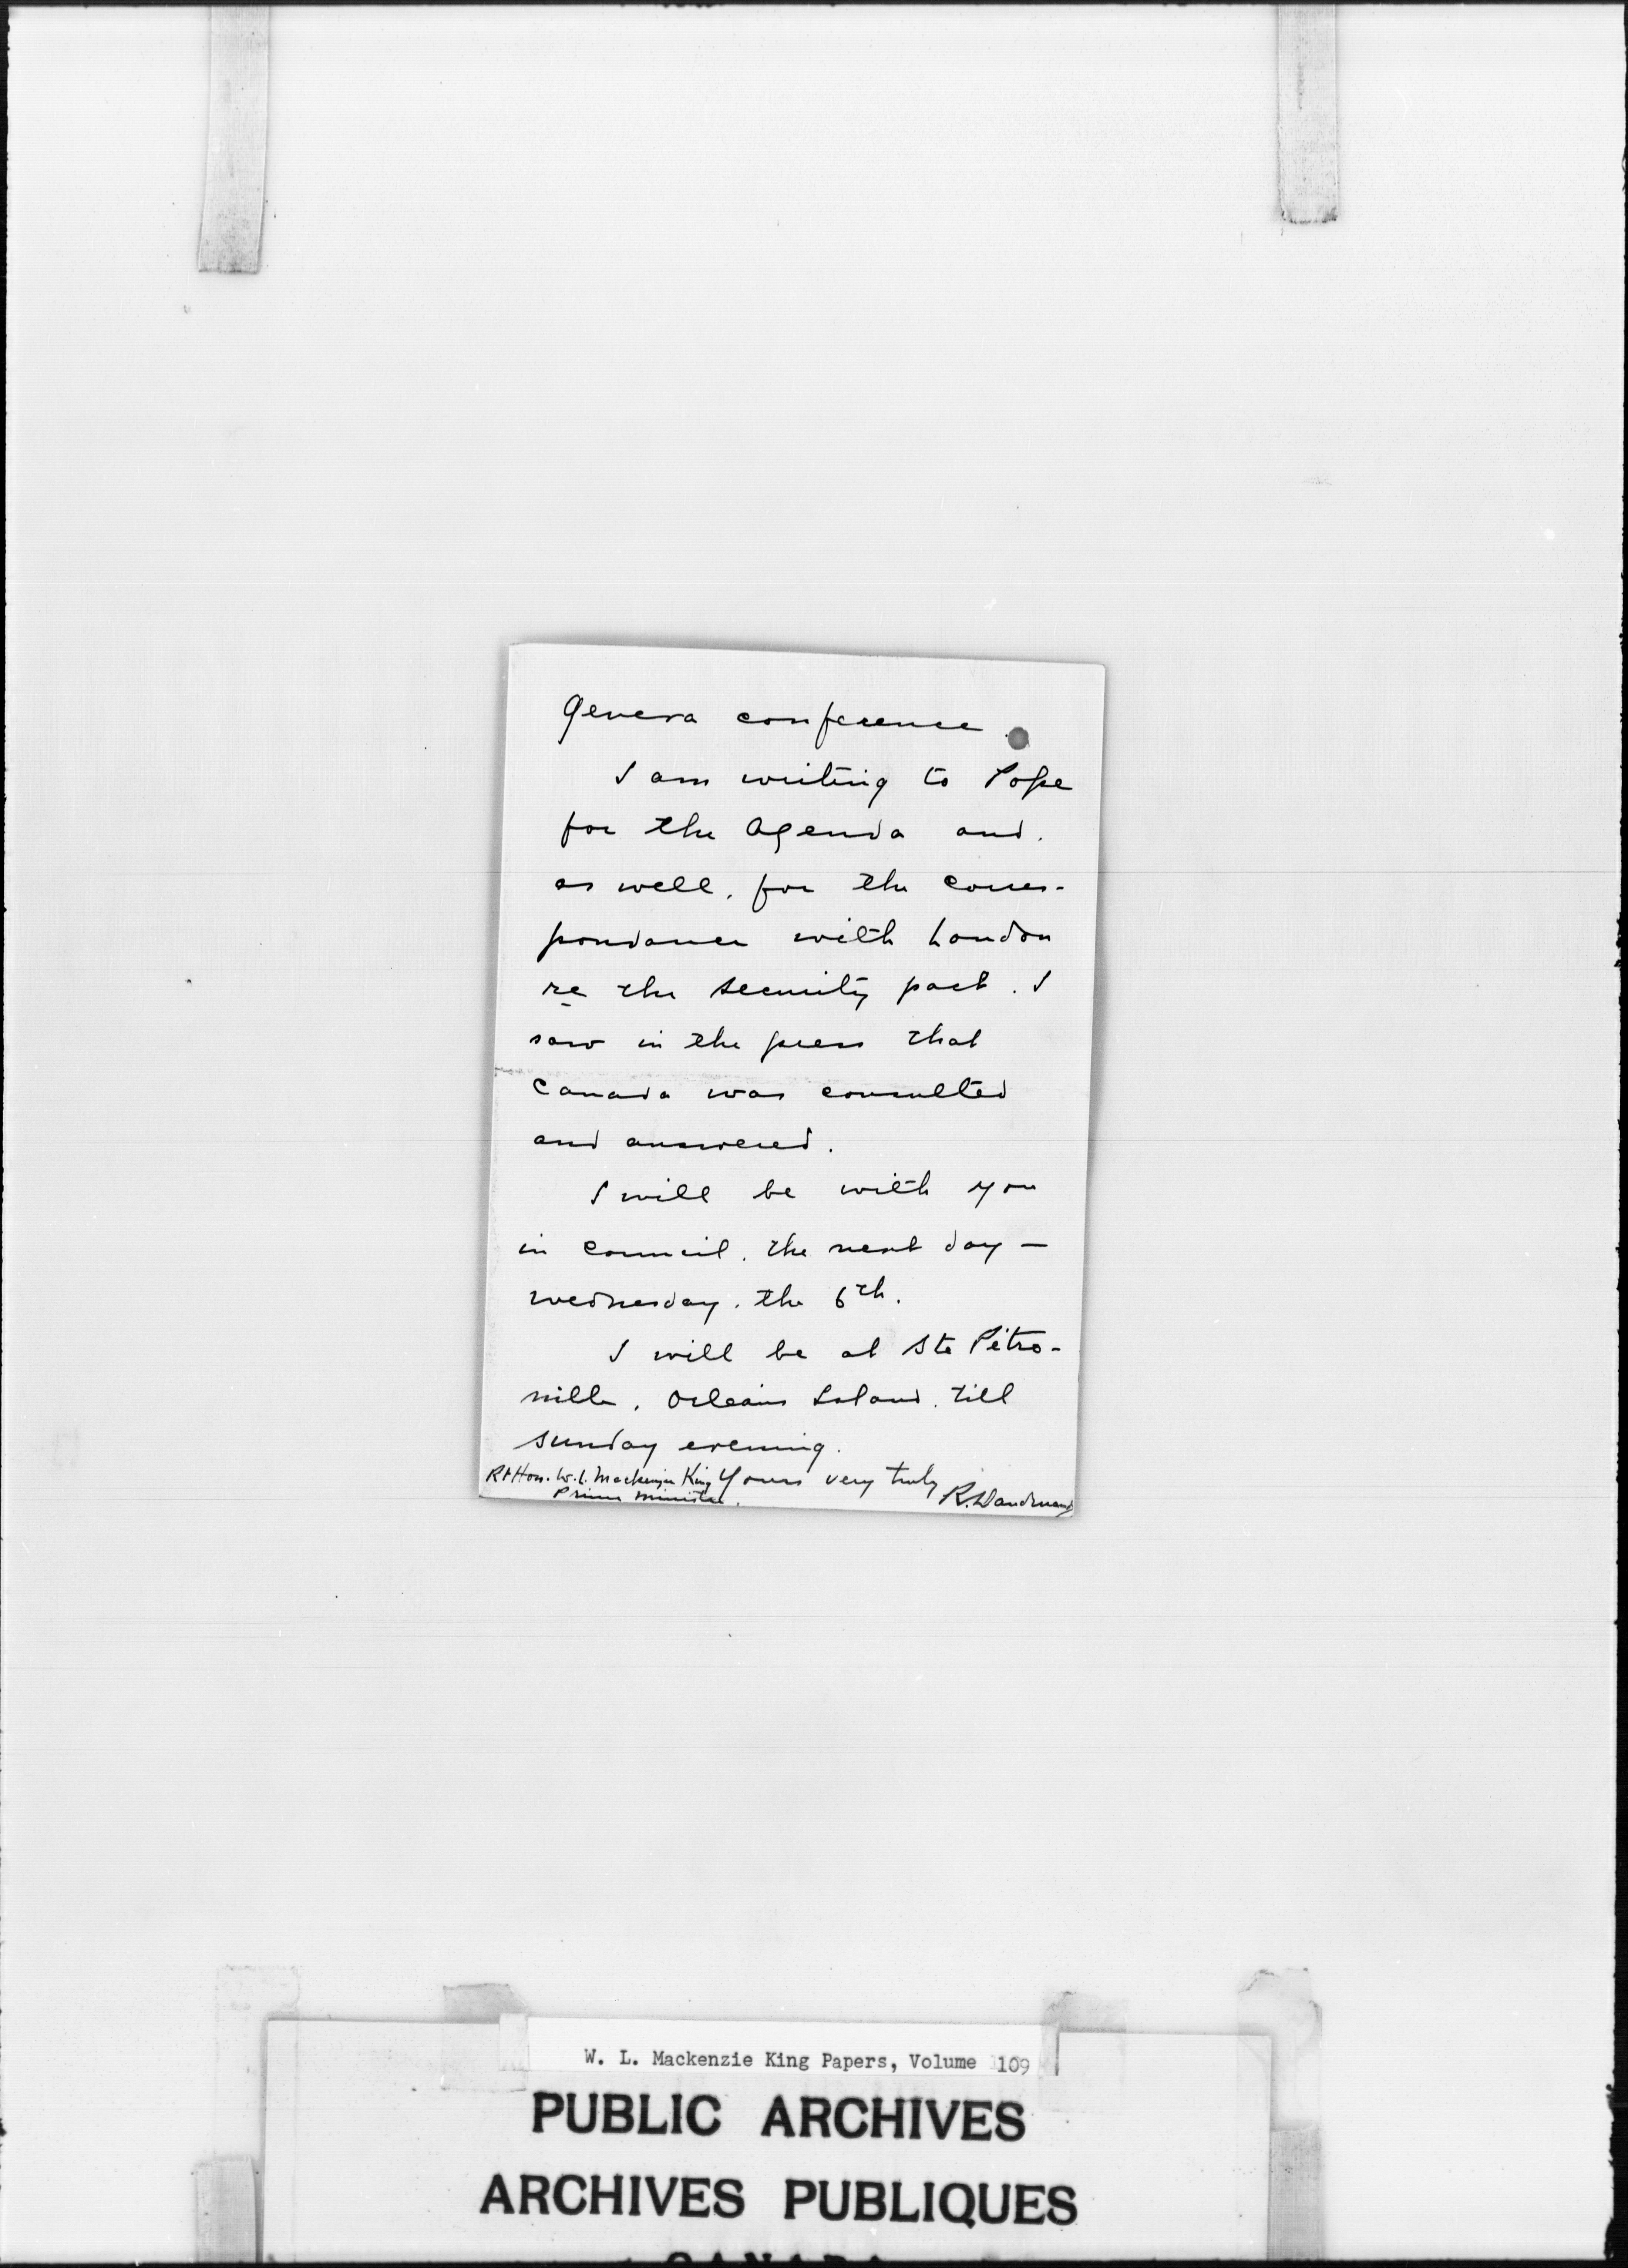 Geneva conference.
I am writing to Pope
for the agenda and.
as well, for the corres-
pondance with London
re the security pact. I
saw in the press that
Canada was consulted
and answered.
I will be with you
in council, the next day —
wednesday, the 6th.
I will be at Ste Pétro-
nille, Orleans Island, till
sunday evening.
Yours very truly
R. Dandurand
Rt Hon. W. L. Mackenzie King
Prime Minister.
W. L. Mackenzie King Papers, Volume 109
PUBLIC ARCHIVES
ARCHIVES PUBLIQUES
CANADA